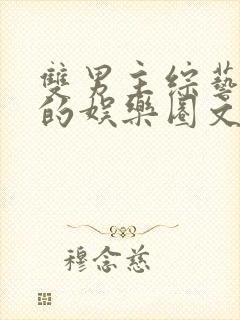 雙男主綜藝
的娛樂圈文
穆念慈